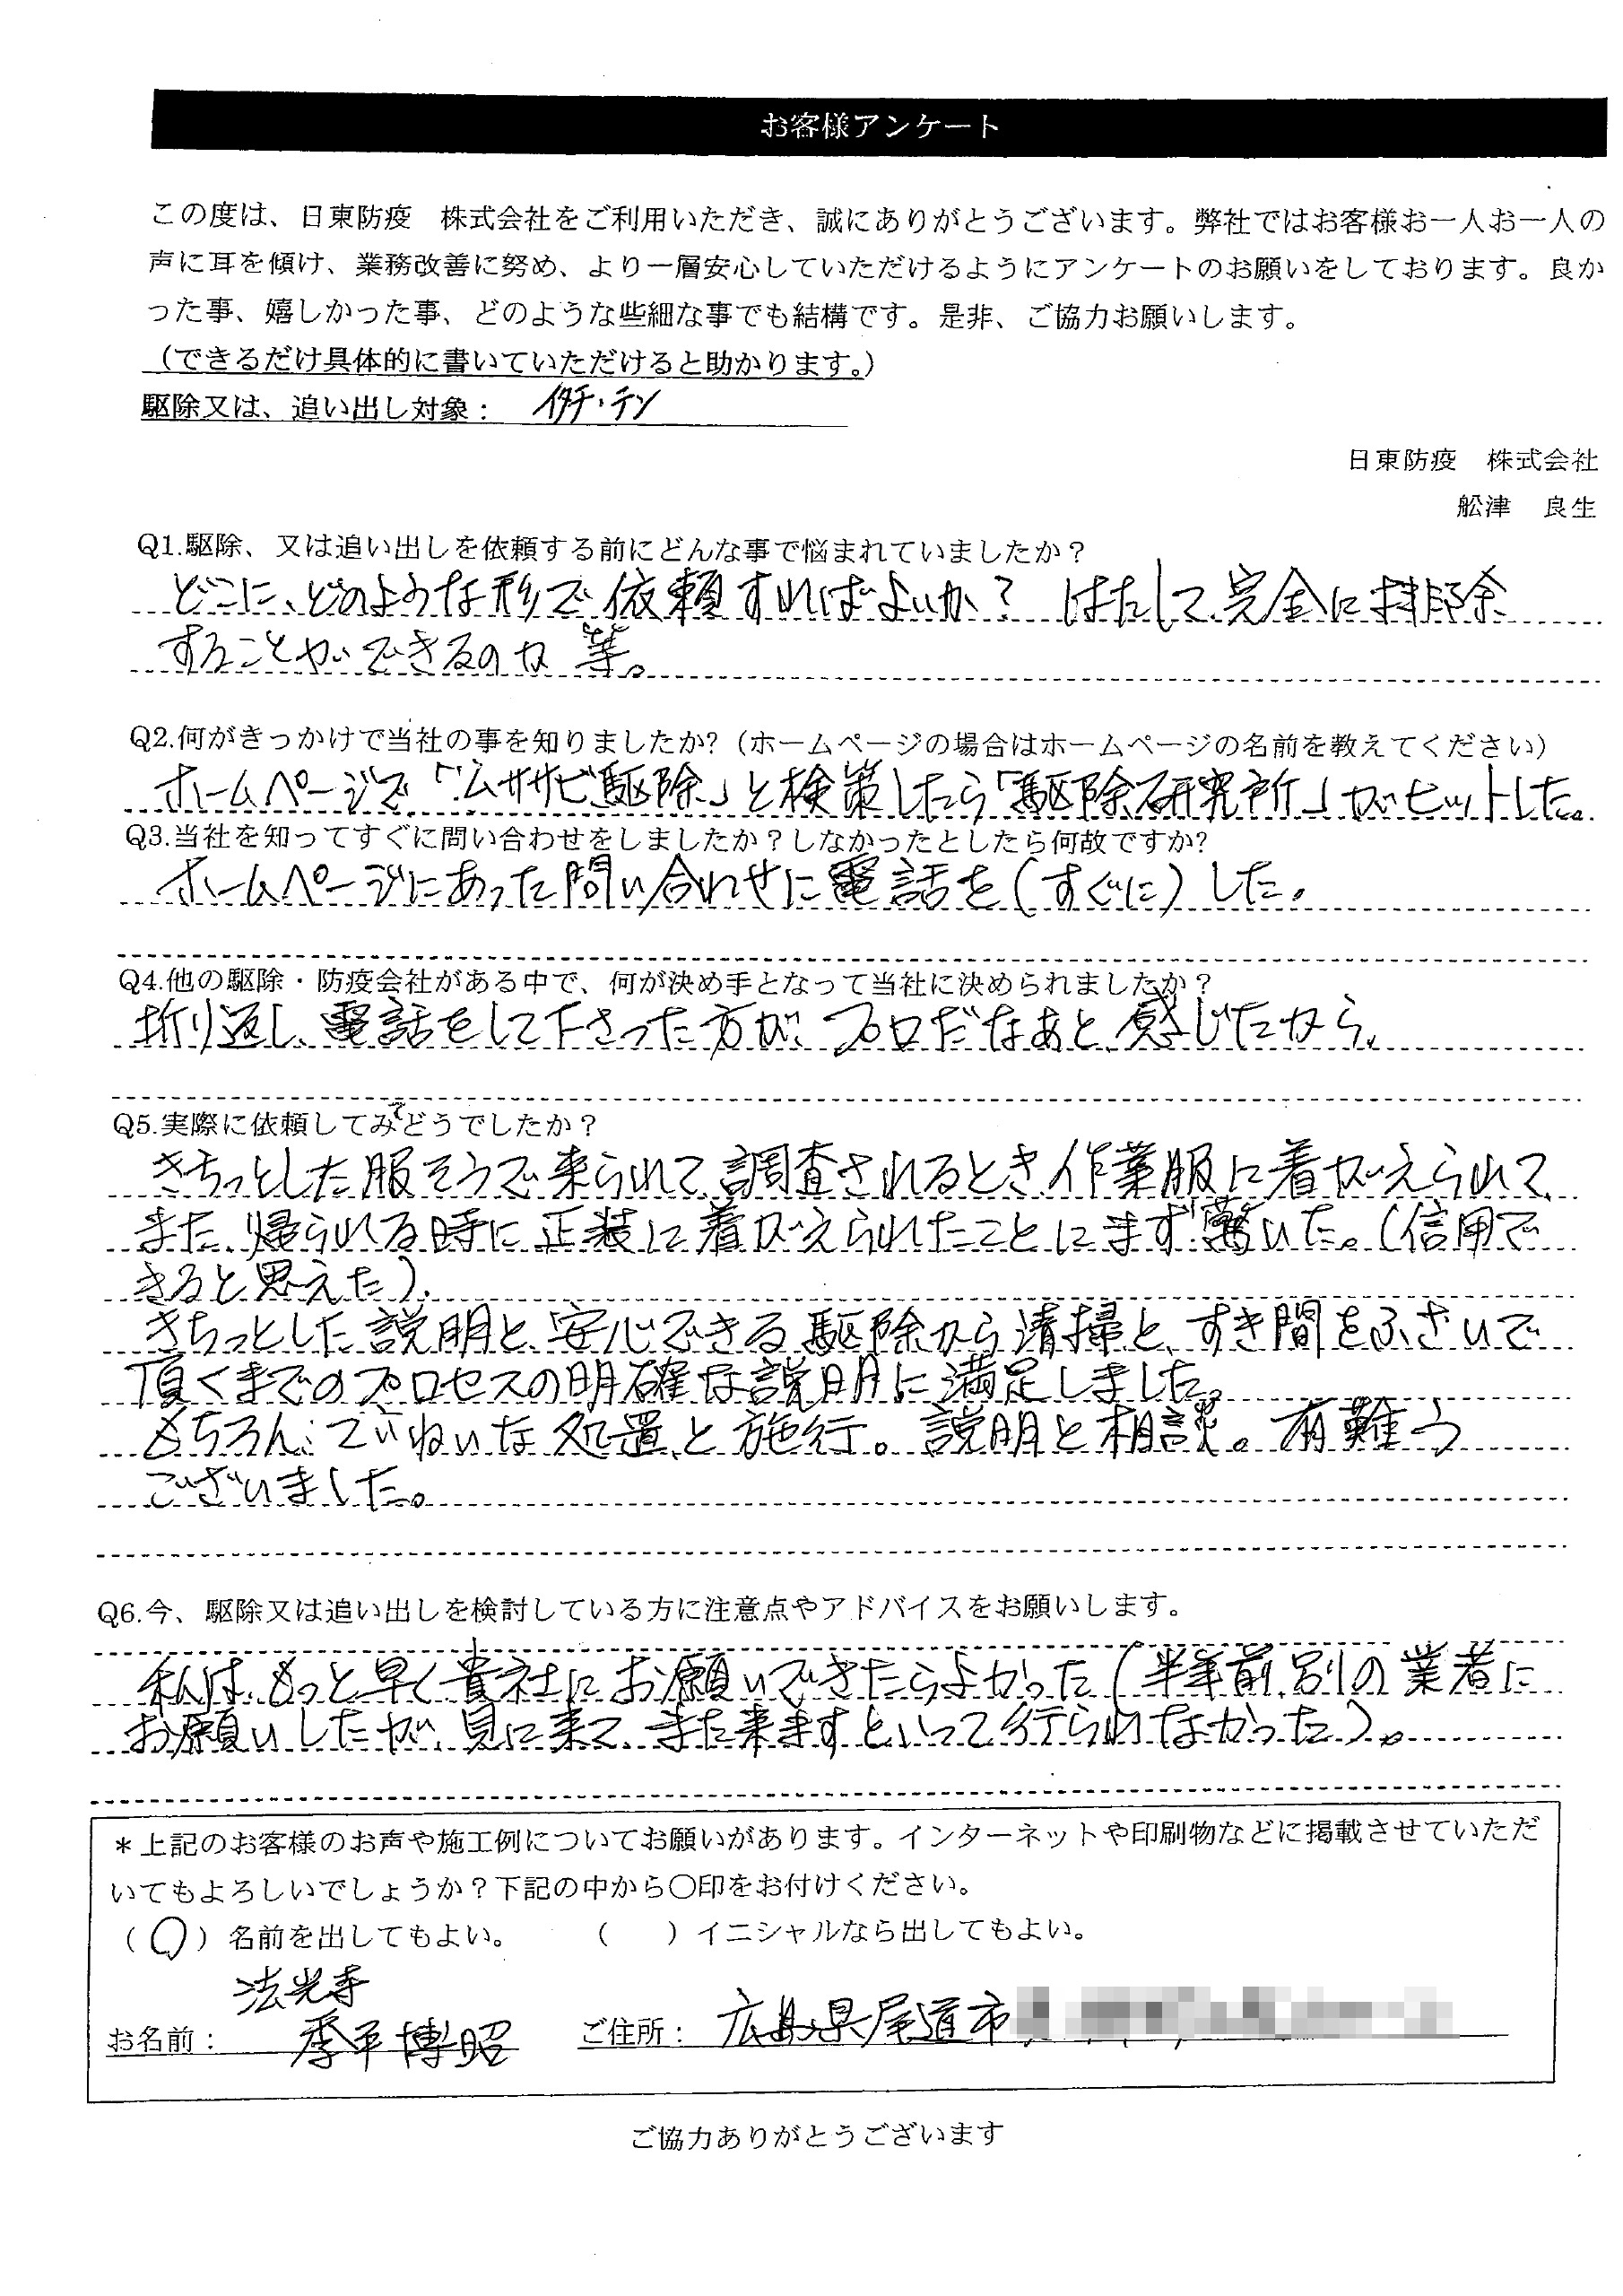 お客様アンケート
この度は、日東防疫　株式会社をご利用いただき、誠にありがとうございます。弊社ではお客様お一人お一人の
声に耳を傾け、業務改善に努め、より一層安心していただけるようにアンケートのお願いをしております。良か
った事、嬉しかった事、どのような些細な事でも結構です。是非、ご協力お願いします。
（できるだけ具体的に書いていただけると助かります。）
駆除又は、追い出し対象： イタチ・テン
日東防疫　株式会社
舩津　良生
Q1.駆除、又は追い出しを依頼する前にどんな事で悩まれていましたか？
どこに、どのような形で依頼すればよいか？ はたして完全に排除
することができるのか 等。
Q2.何がきっかけで当社の事を知りましたか?（ホームページの場合はホームページの名前を教えてください）
ホームページで「ムササビ駆除」と検策したら「駆除研究所」がヒットした。
Q3.当社を知ってすぐに問い合わせをしましたか？しなかったとしたら何故ですか?
ホームページにあった問い合わせに電話を（すぐに）した。
Q4.他の駆除・防疫会社がある中で、何が決め手となって当社に決められましたか？
折り返し、電話をして下さった方が、プロだなあと感じたから。
Q5.実際に依頼してみてどうでしたか？
きちっとした服そうで来られて、調査されるとき作業服に着がえられて、
また、帰られる時に正装に着がえられたことにまず驚いた。（信用で
きると思えた）。
きちっとした説明と、安心できる駆除から清掃と、すき間をふさいで
頂くまでのプロセスの明確な説明に満足しました。
もちろん、ていねいな処置と施行。説明と相談。有難う
ございました。
Q6.今、駆除又は追い出しを検討している方に注意点やアドバイスをお願いします。
私は、もっと早く貴社にお願いできたらよかった（半年前、別の業者に
お願いしたが、見に来て、また来ますといって行られなかった）。
＊上記のお客様のお声や施工例についてお願いがあります。インターネットや印刷物などに掲載させていただ
いてもよろしいでしょうか？下記の中から〇印をお付けください。
（〇）名前を出してもよい。　　（　　）イニシャルなら出してもよい。
法光寺
お名前： 季平博昭　ご住所： 広島県尾道市
ご協力ありがとうございます